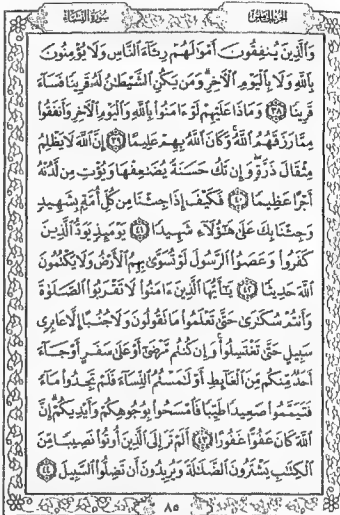 الجزء الخامس
سورة النساء
وَالَّذِينَ يُنفِقُونَ أَمْوَالَهُمْ رِئَاءَ النَّاسِ وَلَا يُؤْمِنُونَ
بِاللَّهِ وَلَا بِالْيَوْمِ الْآخِرِ وَمَن يَكُنِ الشَّيْطَانُ لَهُ قَرِينًا فَسَاءَ
قَرِينًا ٣٨ وَمَاذَا عَلَيْهِمْ لَوْ ءَامَنُوا بِاللَّهِ وَالْيَوْمِ الْآخِرِ وَأَنفَقُوا
مِمَّا رَزَقَهُمُ اللَّهُ وَكَانَ اللَّهُ بِهِمْ عَلِيمًا ٣٩ إِنَّ اللَّهَ لَا يَظْلِمُ
مِثْقَالَ ذَرَّةٍ وَإِن تَكُ حَسَنَةً يُضَاعِفْهَا وَيُؤْتِ مِن لَّدُنْهُ
أَجْرًا عَظِيمًا ٤٠ فَكَيْفَ إِذَا جِئْنَا مِن كُلِّ أُمَّةٍ بِشَهِيدٍ
وَجِئْنَا بِكَ عَلَىٰ هَٰؤُلَاءِ شَهِيدًا ٤١ يَوْمَئِذٍ يَوَدُّ الَّذِينَ
كَفَرُوا وَعَصَوُا الرَّسُولَ لَوْ تُسَوَّىٰ بِهِمُ الْأَرْضُ وَلَا يَكْتُمُونَ
اللَّهَ حَدِيثًا ٤٢ يَٰأَيُّهَا الَّذِينَ ءَامَنُوا لَا تَقْرَبُوا الصَّلَوٰةَ
وَأَنتُمْ سُكَٰرَىٰ حَتَّىٰ تَعْلَمُوا مَا تَقُولُونَ وَلَا جُنُبًا إِلَّا عَابِرِي
سَبِيلٍ حَتَّىٰ تَغْتَسِلُوا وَإِن كُنتُم مَّرْضَىٰ أَوْ عَلَىٰ سَفَرٍ أَوْ جَاءَ
أَحَدٌ مِّنكُم مِّنَ الْغَائِطِ أَوْ لَٰمَسْتُمُ النِّسَاءَ فَلَمْ تَجِدُوا مَاءً
فَتَيَمَّمُوا صَعِيدًا طَيِّبًا فَامْسَحُوا بِوُجُوهِكُمْ وَأَيْدِيكُمْ إِنَّ
اللَّهَ كَانَ عَفُوًّا غَفُورًا ٤٣ أَلَمْ تَرَ إِلَى الَّذِينَ أُوتُوا نَصِيبًا مِّنَ
الْكِتَٰبِ يَشْتَرُونَ الضَّلَٰلَةَ وَيُرِيدُونَ أَن تَضِلُّوا السَّبِيلَ ٤٤
٨٥